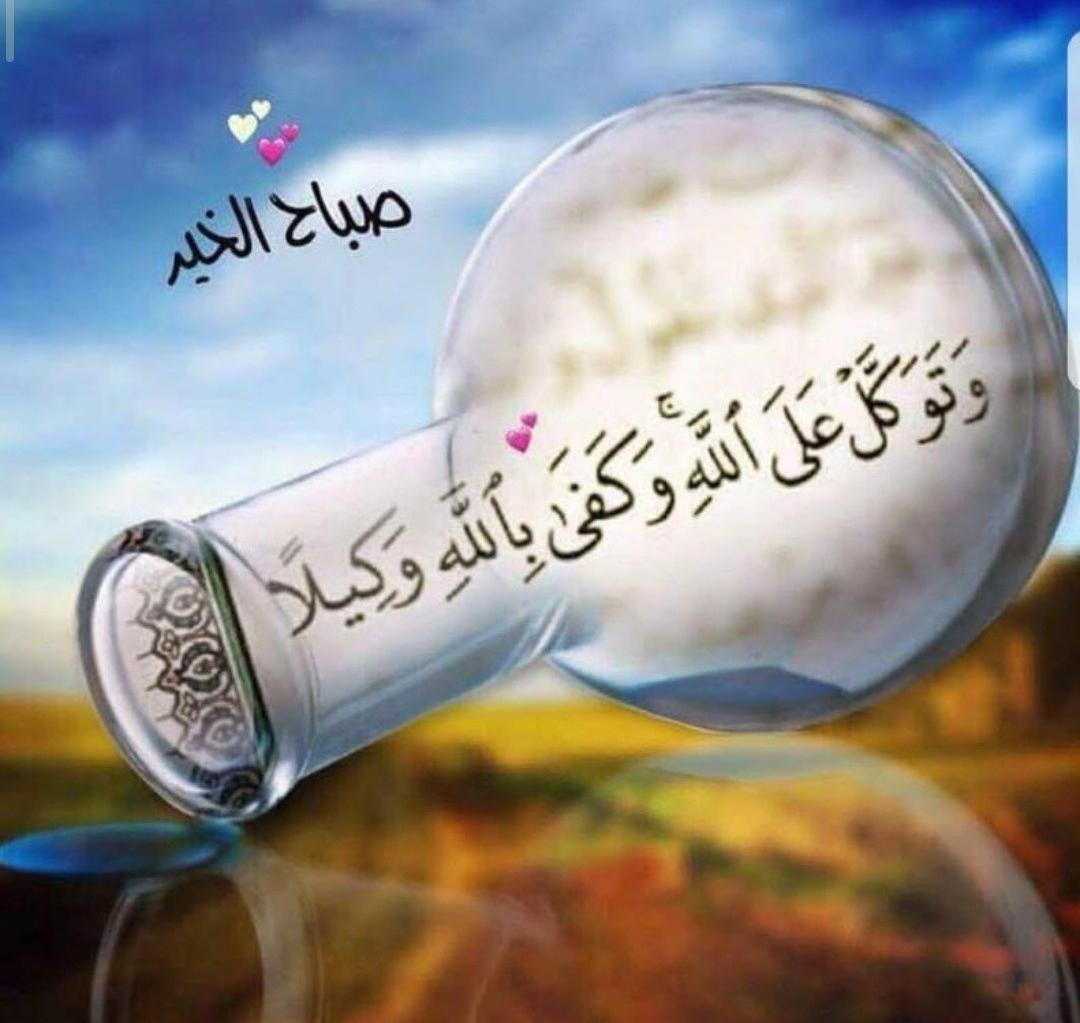 صباح الخير
وَتَوَكَّلْ عَلَى ٱللَّهِ ۚ وَكَفَىٰ بِٱللَّهِ وَكِيلًا